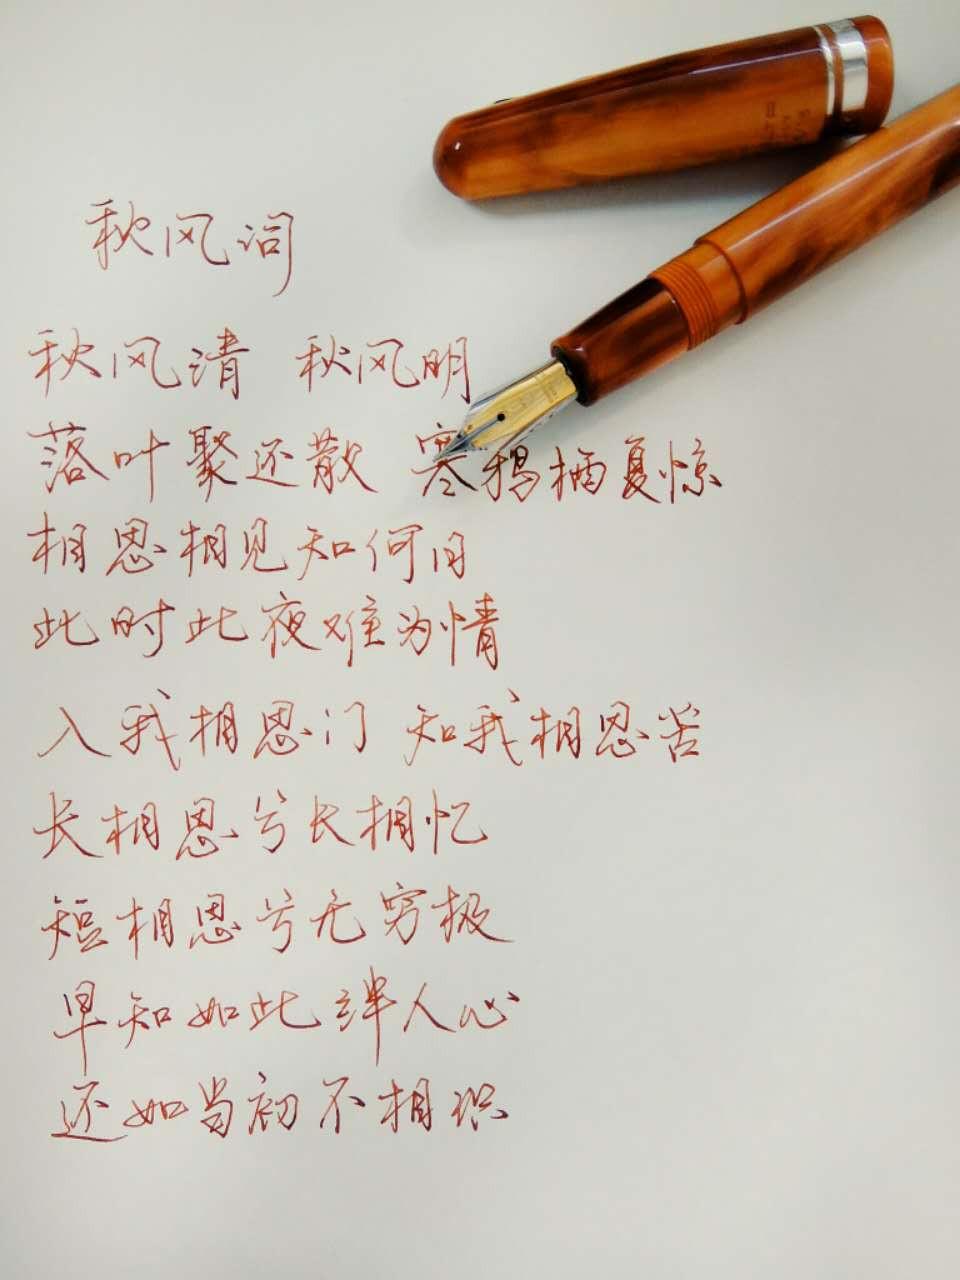 秋风词
秋风清 秋风明
落叶聚还散 寒鸦栖复惊
相思相见知何日
此时此夜难为情
入我相思门 知我相思苦
长相思兮长相忆
短相思兮无穷极
早知如此绊人心
还如当初不相识